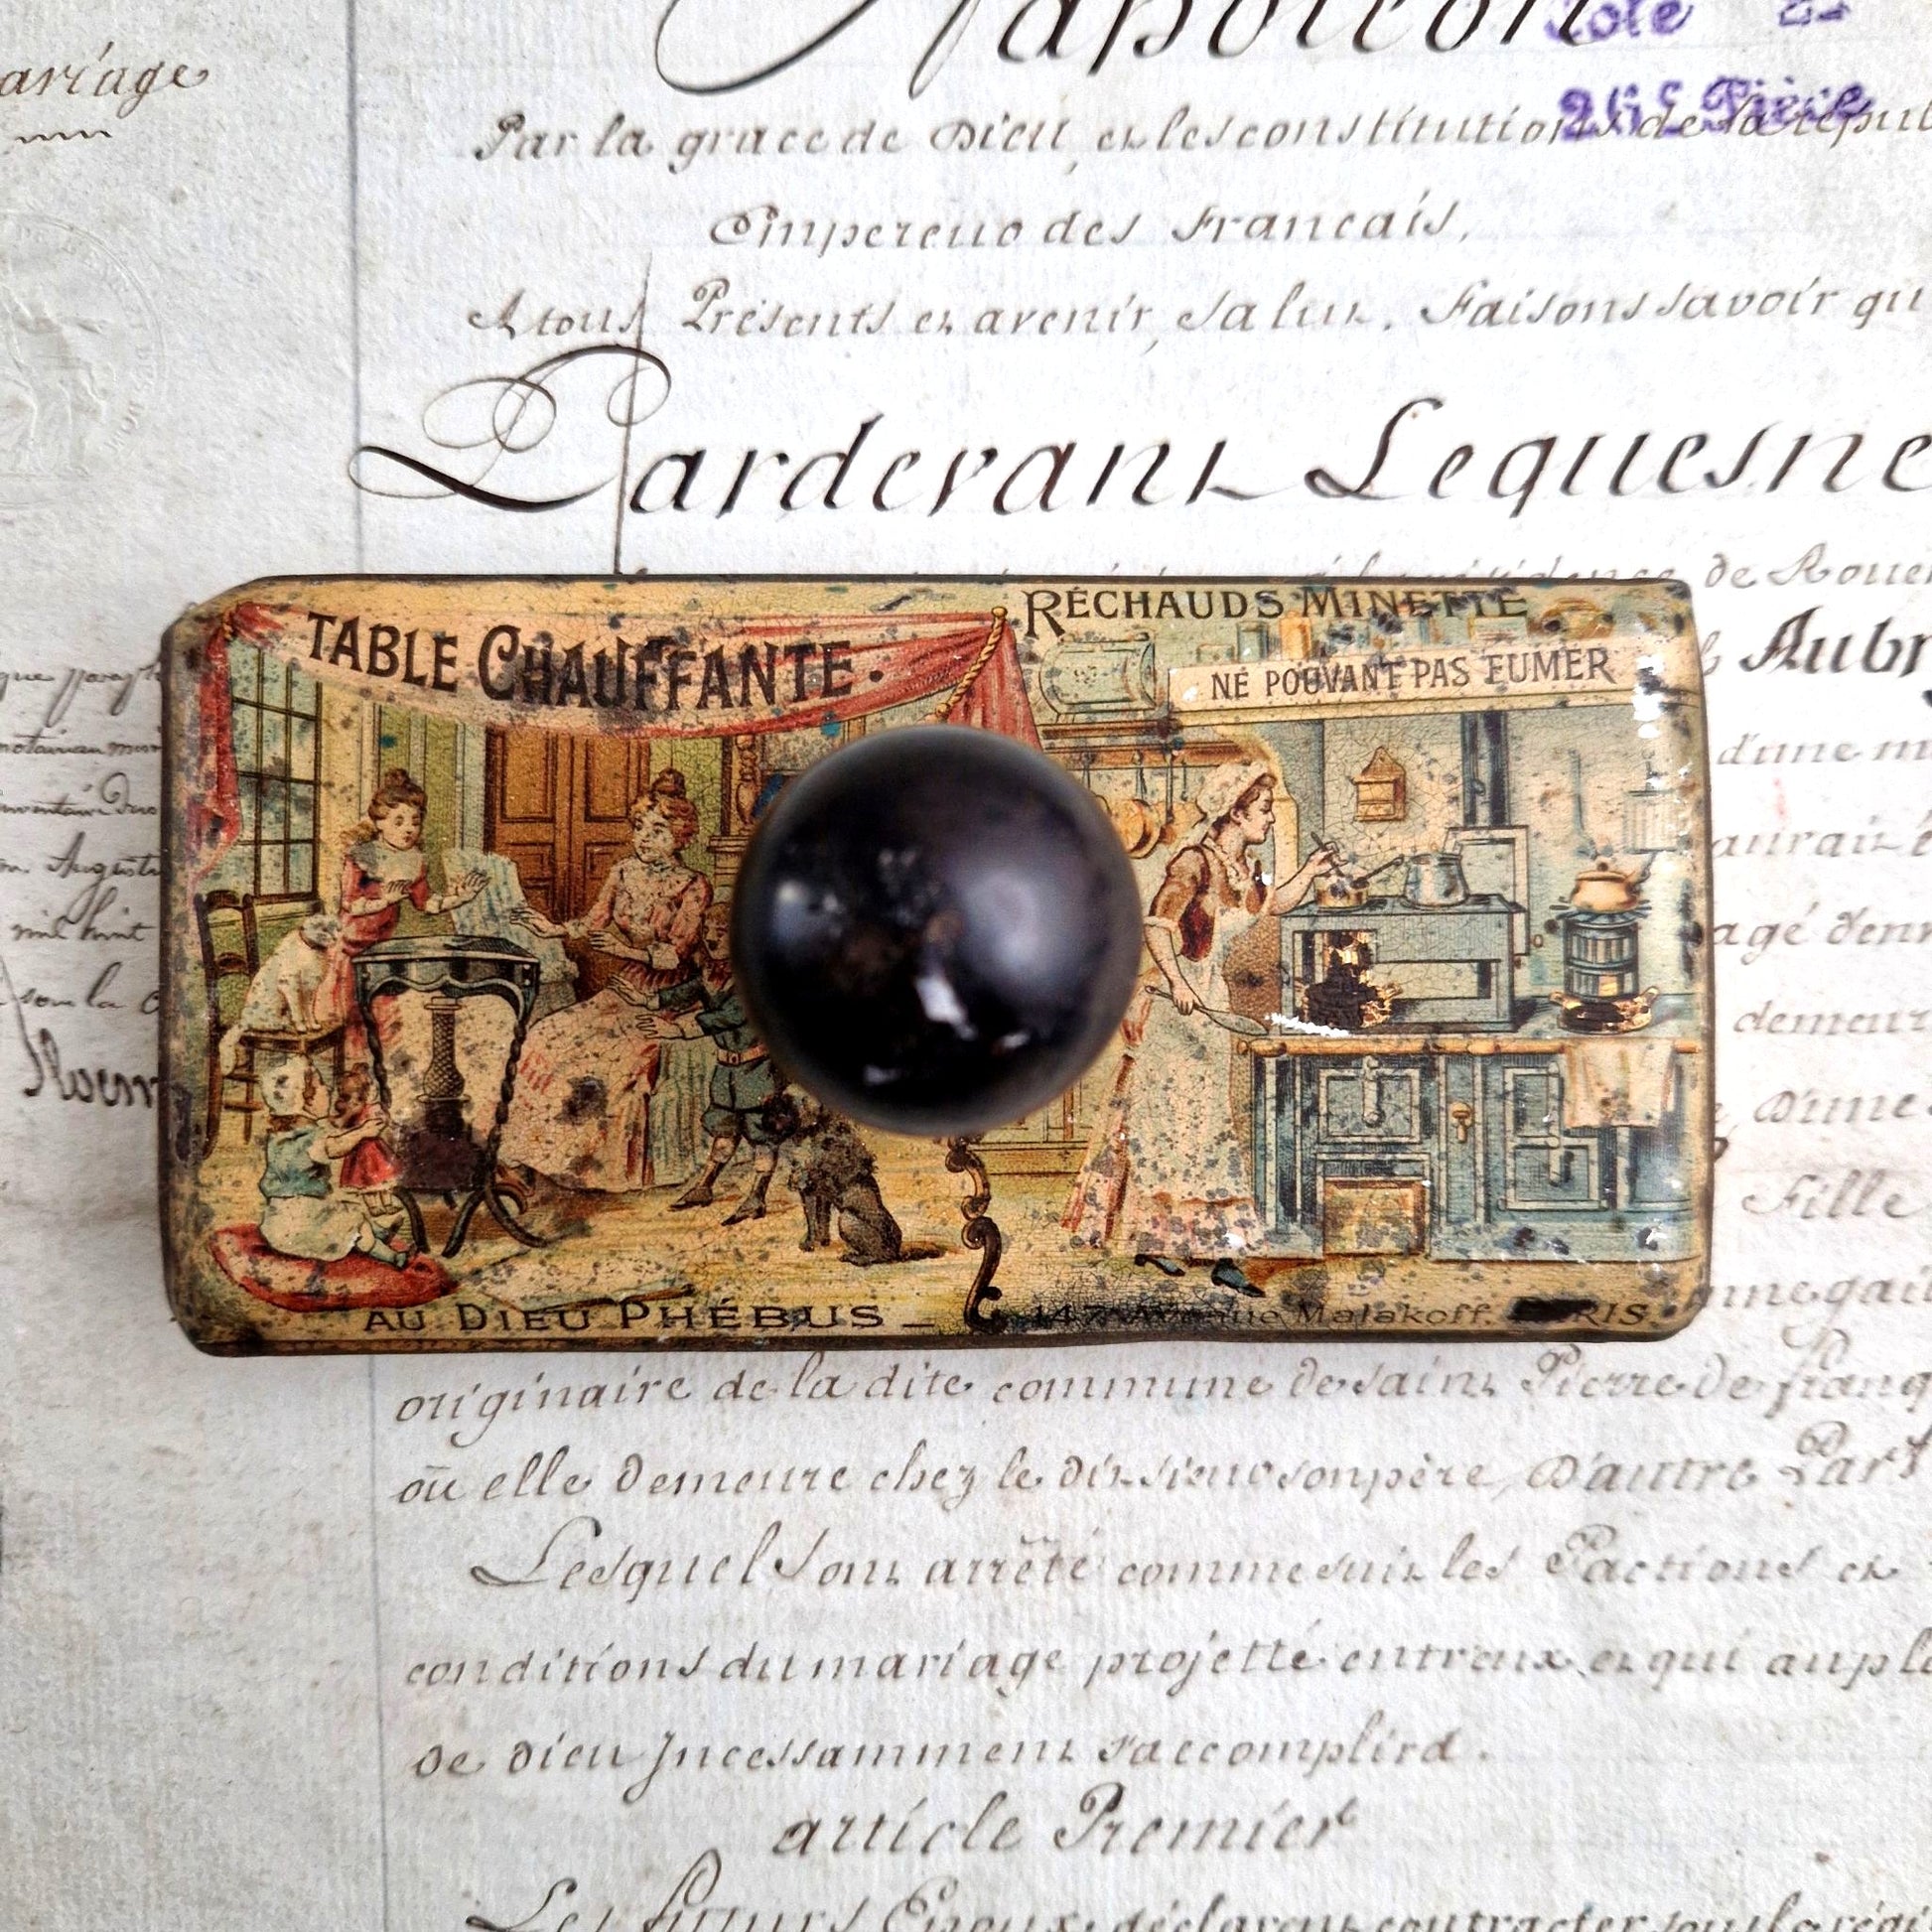 Napoléon
ariage
Par la grace de Dieu, et les constitutions de la répu
Empereur des Francais,
A tous Présents et avenir, Salut, Faisons savoir qu
Pardevant Lequesne
de Rouen
TABLE CHAUFFANTE.
RÉCHAUDS MINETTE
NE POUVANT PAS FUMER
Aubr
d'une m
aurait
agé d'en
demeur
D'une
Fille
AU DIEU PHÉBUS _ 147 Avenue Malakoff, PARIS.
originaire de la dite commune de saint Pierre de franq
où elle demeure chez le dit sieur son père, D'autre Part
Lesquels ont arrêté comme suit les Pactions et
conditions du mariage projetté entreux, et qui au pl
de dieu Incessamment s'accomplira.
article Premier
Les futurs Epoux déclarent contracter sous le rég